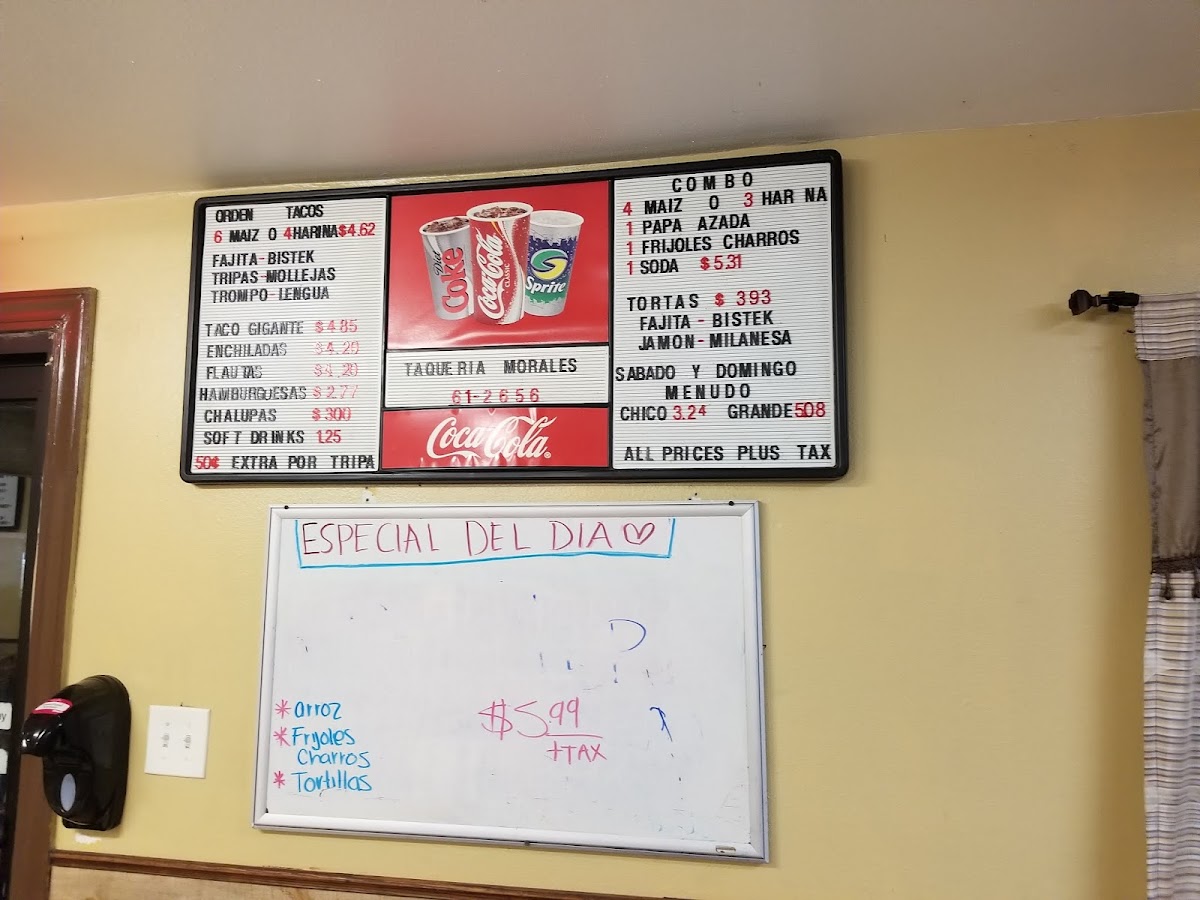 ORDEN TACOS
6 MAIZ O 4 HARINA $4.62
FAJITA-BISTEK
TRIPAS-MOLLEJAS
TROMPO-LENGUA
TACO GIGANTE $4.85
ENCHILADAS $4.20
FLAUTAS $4.20
HAMBURGUESAS $2.77
CHALUPAS $300
SOFT DRINKS 1.25
50¢ EXTRA POR TRIPA
Diet Coke
Coca-Cola
CLASSIC
Sprite
TAQUERIA MORALES
61-2656
Coca-Cola
COMBO
4 MAIZ O 3 HAR NA
1 PAPA AZADA
1 FRIJOLES CHARROS
1 SODA $5.31
TORTAS $ 393
FAJITA - BISTEK
JAMON-MILANESA
SABADO Y DOMINGO
MENUDO
CHICO 3.24 GRANDE 508
ALL PRICES PLUS TAX
ESPECIAL DEL DIA
D
* arroz
* Fryoles
Charros
* Tortillas
$5.99
+TAX